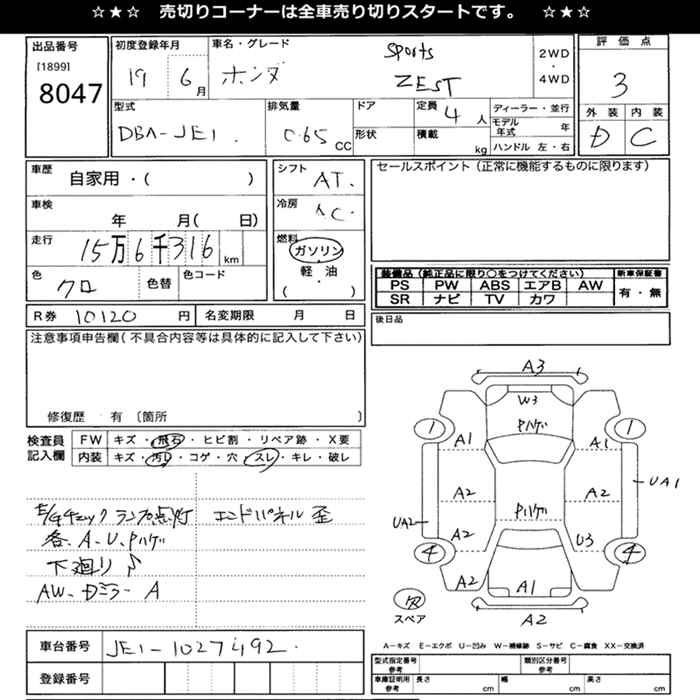 ☆★☆ 売切りコーナーは全車売り切りスタートです。 ☆★☆
出品番号
[1899]
8047
初度登録年月
19 6月
車名・グレード
ホンダ
Sports
ZEST
2WD
・
4WD
評価点
3
外装 内装
D C
型式
DBA-JE1.
排気量
0.65 CC
ドア
形状
定員
4 人
積載
kg
ディーラー・並行
モデル年式 年
ハンドル 左・右
車歴
自家用・( )
車検
年 月( 日)
走行
15万6千316 km
色
クロ
色替
色コード
シフト
AT.
冷房
AC.
燃料
ガソリン
・
軽油
( )
セールスポイント(正常に機能するものに限ります)
装備品(純正品に限り○をつけてください) 新車保証書
PS PW ABS エアB AW
SR ナビ TV カワ
有・無
R券 10120 円 名変期限 月 日
後日品
注意事項申告欄(不具合内容等は具体的に記入して下さい)
修復歴 有 〔箇所 〕
検査員記入欄
FW キズ・飛石・ヒビ割・リペア跡・X要
内装 キズ・汚れ・コゲ・穴・スレ・キレ・破レ
E/Gチェックランプ点灯
エンドパネル 歪
各. A-U. Pハゲ
下廻り
AW. Dミラー A
A3
W3
Pハゲ
1 1
A1 A1
A2 A2
UA1
Pハゲ
UA2
A2 U3
4 4
A2 A1
A2
欠
スペア
車台番号 JE1-1027492.
登録番号
A-キズ E-エクボ U-凹み W-補修跡 S-サビ C-腐食 XX-交換済
型式指定番号 参考 類別区分番号 参考
車庫証明用 参考 長さ cm 幅 cm 高さ cm